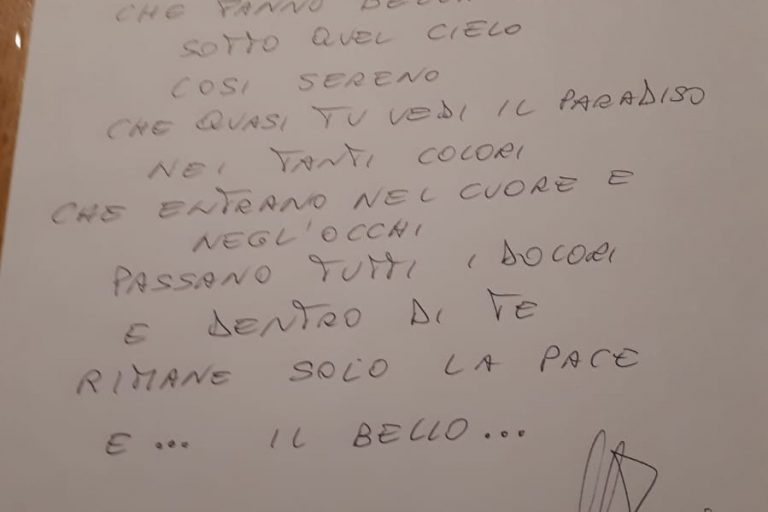 CHE FANNO
SOTTO QUEL CIELO
COSI SERENO
CHE QUASI TU VEDI IL PARADISO
NEI TANTI COLORI
CHE ENTRANO NEL CUORE E
NEGL'OCCHI
PASSANO TUTTI I DOLORI
E DENTRO DI TE
RIMANE SOLO LA PACE
E... IL BELLO...